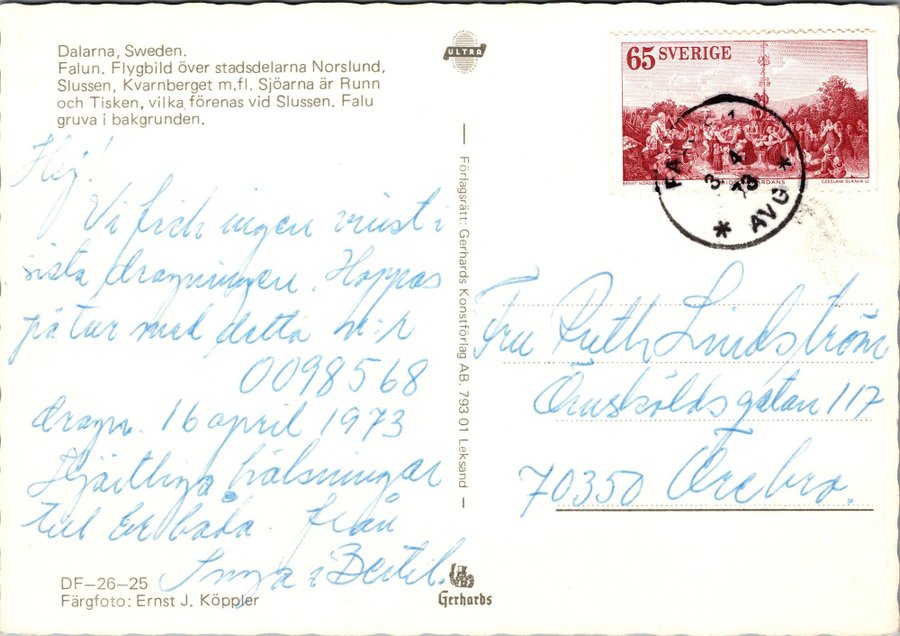 Dalarna, Sweden.
Falun. Flygbild över stadsdelarna Norslund,
Slussen, Kvarnberget m.fl. Sjöarna är Runn
och Tisken, vilka förenas vid Slussen. Falu
gruva i bakgrunden.
Hej!
Vi fick ingen vinst i
sista dragningen. Hoppas
på tur med detta nr:r
0098568
dragn. 16 april 1973
Hjärtliga hälsningar
till Er båda från
Inga & Bertil.
DF-26-25
Färgfoto: Ernst J. Köppler
ULTRA
Förlagsrätt: Gerhards Konstförlag AB. 793 01 Leksand
Gerhards
65 SVERIGE
BENGT NORDENBERG
CZESLAW SLANIA SC
3 4
73
* AVG *
Fru Ruth Lindström
Örnsköldsgatan 117
70350 Örebro.